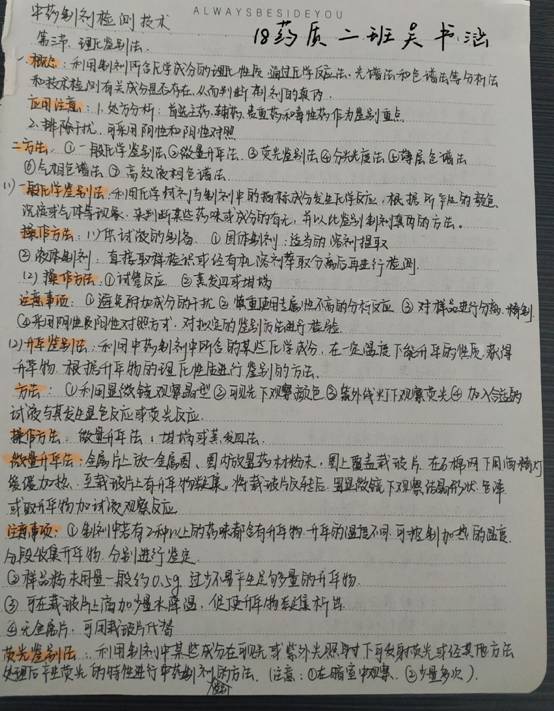 ALWAYSBESIDEYOU
中药制剂检测技术
18药质二班吴书涵
第三节、理化鉴别法.
一概念：利用制剂所含化学成分的理化性质 通过化学反应法、光谱法和色谱法等分析法
和技术检测有关成分是否存在,从而判断制剂的真伪
应用注意：1.处方分析：首选主药、辅药、贵重药和毒性药作为鉴别重点
2.排除干扰,可采用阴性和阳性对照
二方法：①一般化学鉴别法②微量升华法③荧光鉴别法④分光光度法⑤薄层色谱法
⑥气相色谱法⑦高效液相色谱法
(1)一般化学鉴别法：利用化学试剂与制剂中的指标成分发生化学反应,根据所产生的颜色、
沉淀或气体等现象,来判断某些药味或成分的有无,并以此鉴别制剂真伪的方法。
操作方法：(1)供试液的制备 ①固体制剂：适当的溶剂提取
②液体制剂：直接取样检识或经有机溶剂萃取分离后再进行检测.
(2)操作方法：①试管反应 ②蒸发皿或坩埚
注意事项：①避免附加成分的干扰②慎重使用专属性不高的分析反应③对样品进行分离、精制
④采用阴性及阳性对照方式,对拟定的鉴别方法进行检验
(2)升华鉴别法：利用中药制剂中所含的某些化学成分,在一定温度下能升华的性质,获得
升华物,根据升华物的理化性质进行鉴别的方法.
方法：①利用显微镜观察晶型②可见光下观察颜色③紫外线灯下观察荧光④加入合适的
试液与其发生显色反应或荧光反应.
操作方法：微量升华法：坩埚或蒸发皿法.
微量升华法：金属片上放一金属圈、圈内放置药材粉末,圈上覆盖载玻片,在石棉网下用酒精灯
缓缓加热,至载玻片上有升华物凝集。将载玻片反转后,置显微镜下观察结晶形状、色泽
或取升华物加试液观察反应
注意事项：①制剂中若有2种以上的药味都含有升华物,升华的温度不同,可控制加热的温度.
分段收集升华物,分别进行鉴定.
②样品粉末用量一般约0.5g 过少不易产生足够量的升华物.
③可在载玻片上滴加少量水降温,促使升华物凝集析出
④无金属片,可用载玻片代替
荧光鉴别法：利用制剂中某些成分在可见光或紫外光照射下可发射荧光或经其他方法
处理后产生荧光的特性进行中药制剂鉴别的方法.(注意：①在暗室中观察.②少量多次).